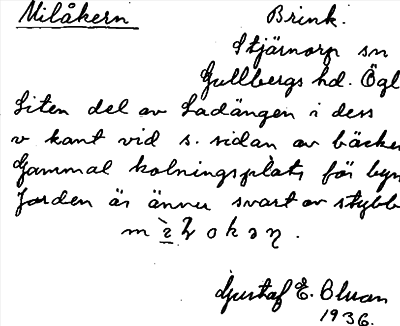 Milåkern Brink.
Stjärnorp sn
Gullbergs hd. Ögl
Liten del av Ladängen i dess
v kant vid s. sidan av bäcken
Gammal kolningsplats för byn
Jorden är ännu svart av stybb
Gustaf E. Bluan
1936.